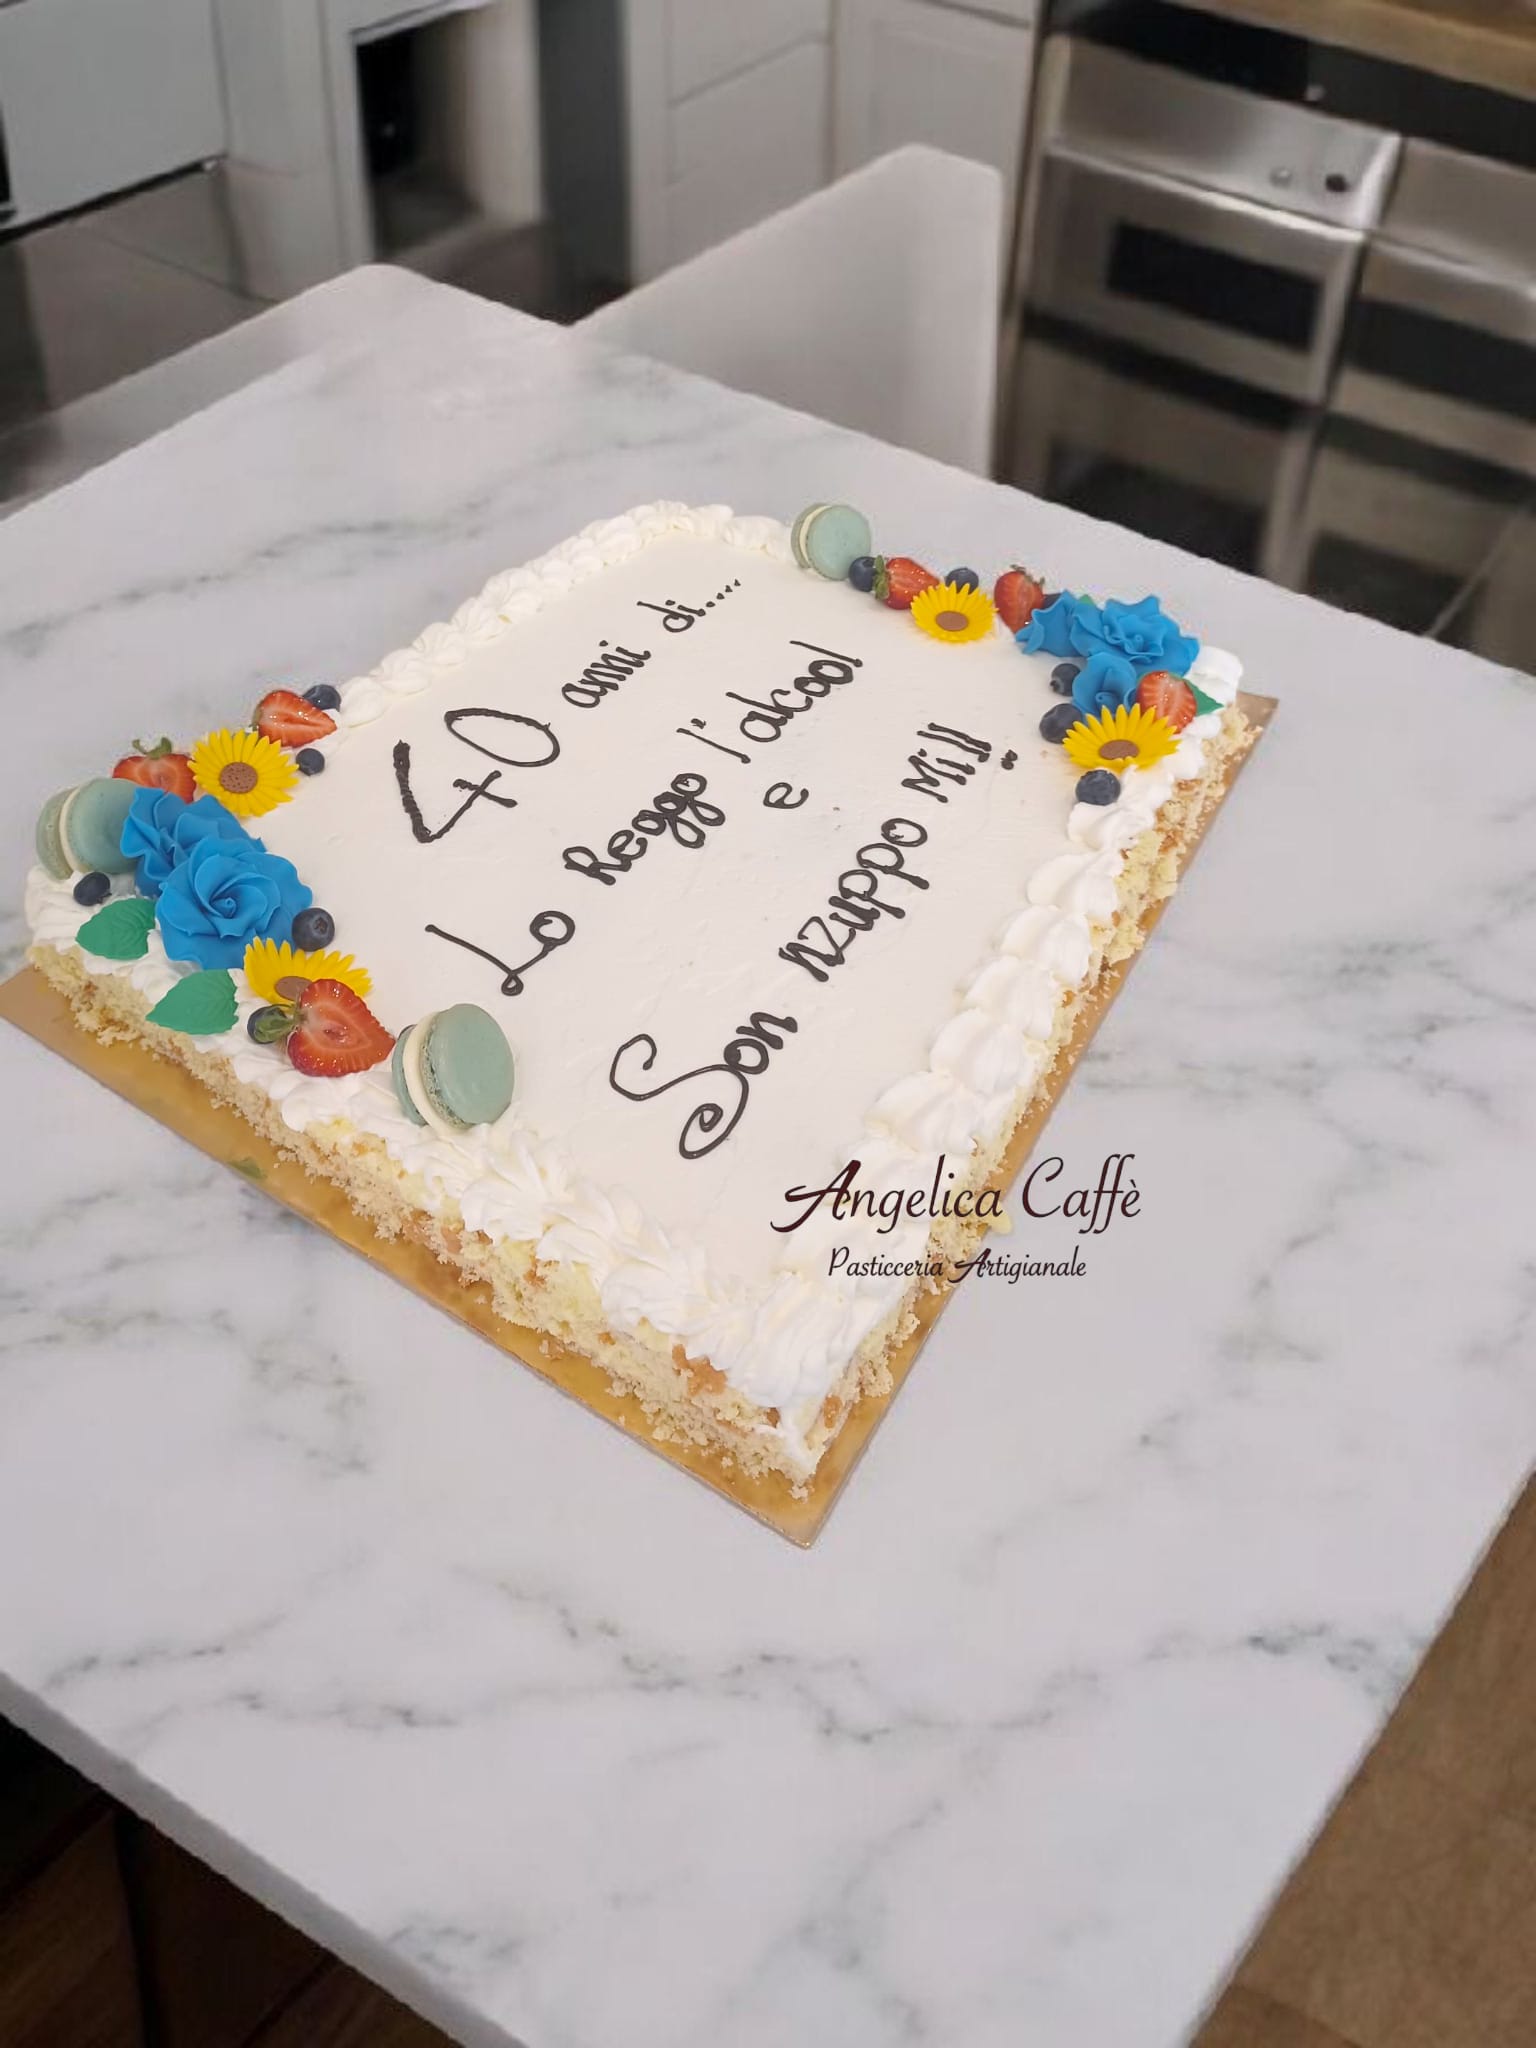 40 anni di....
Lo Reggo l'alcool
e
Son nzuppo Mi!!
Angelica Caffè
Pasticceria Artigianale